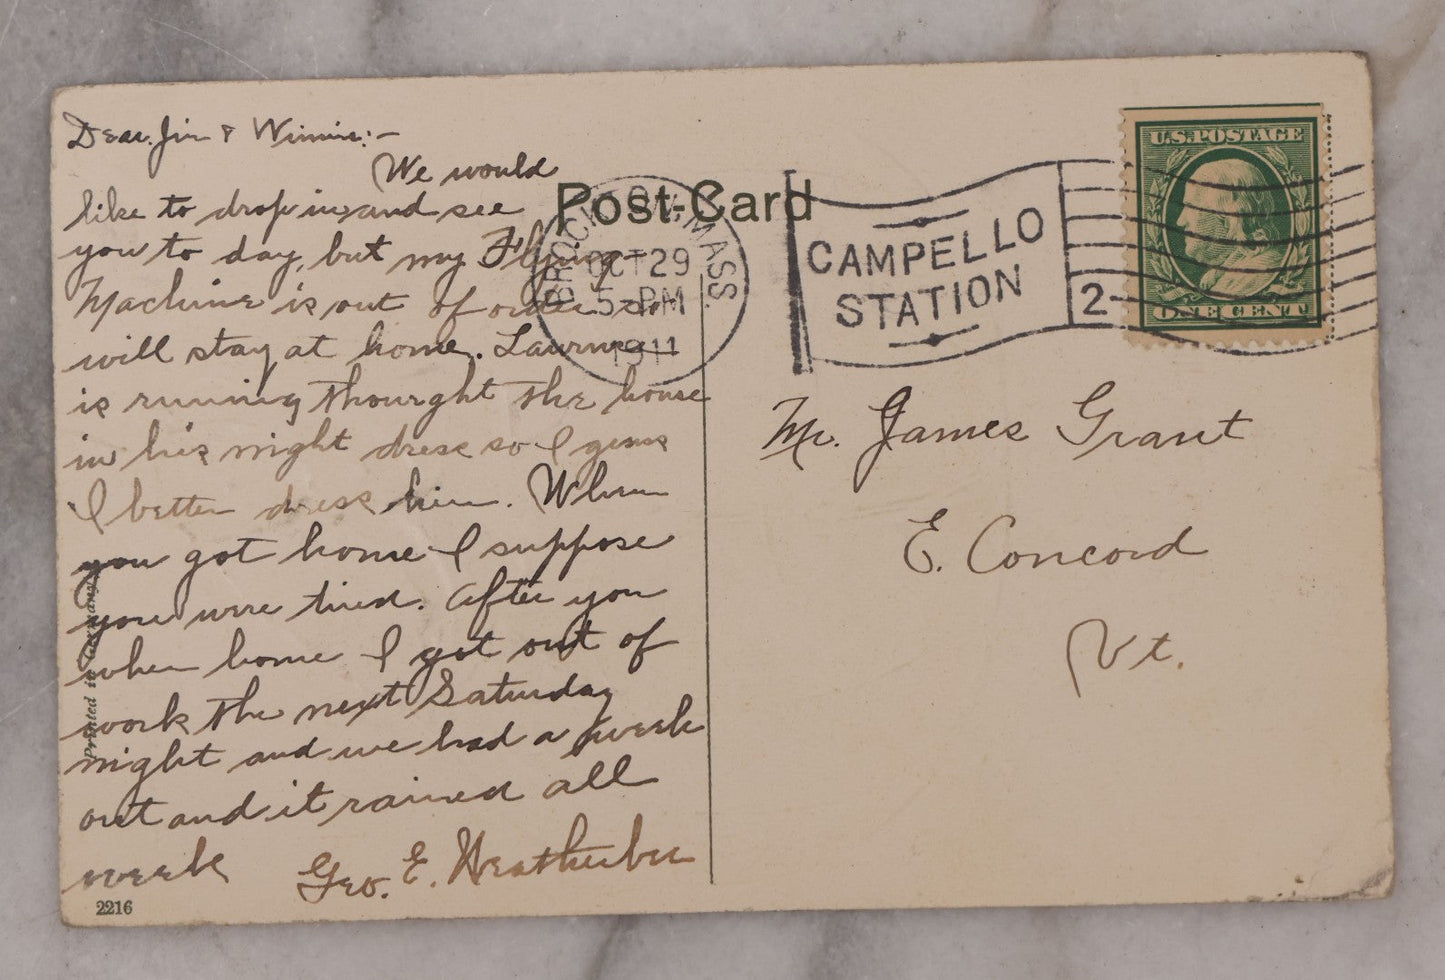 Dear Jim & Winnie:-
We would
like to drop in and see
you to day, but my Flying
Machine is out of order so
will stay at home.
is running thourght the house
in his night dress so I guess
I better dress him. When
you got home I suppose
you were tired. After you
when home I got out of
work the next Saturday
night and we had a week
out and it rained all
week Geo. E. Weatherbee
Printed in Germany
2216
Post-Card
BROCKTON, MASS.
OCT 29
5-PM
1911
CAMPELLO
STATION
2
U.S. POSTAGE
ONE CENT
Mr. James Grant
E. Concord
Vt.